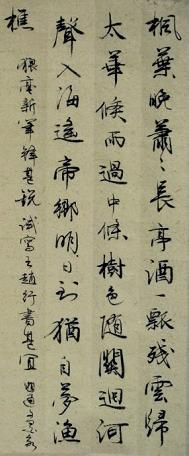 楓葉晚蕭々長亭酒一瓢殘雲歸
太華雨過中條樹色隨關迴河
聲入海遙帝鄉明日到猶自夢漁
樵
毫新筆鋒甚銳試寫王趙行書甚宜